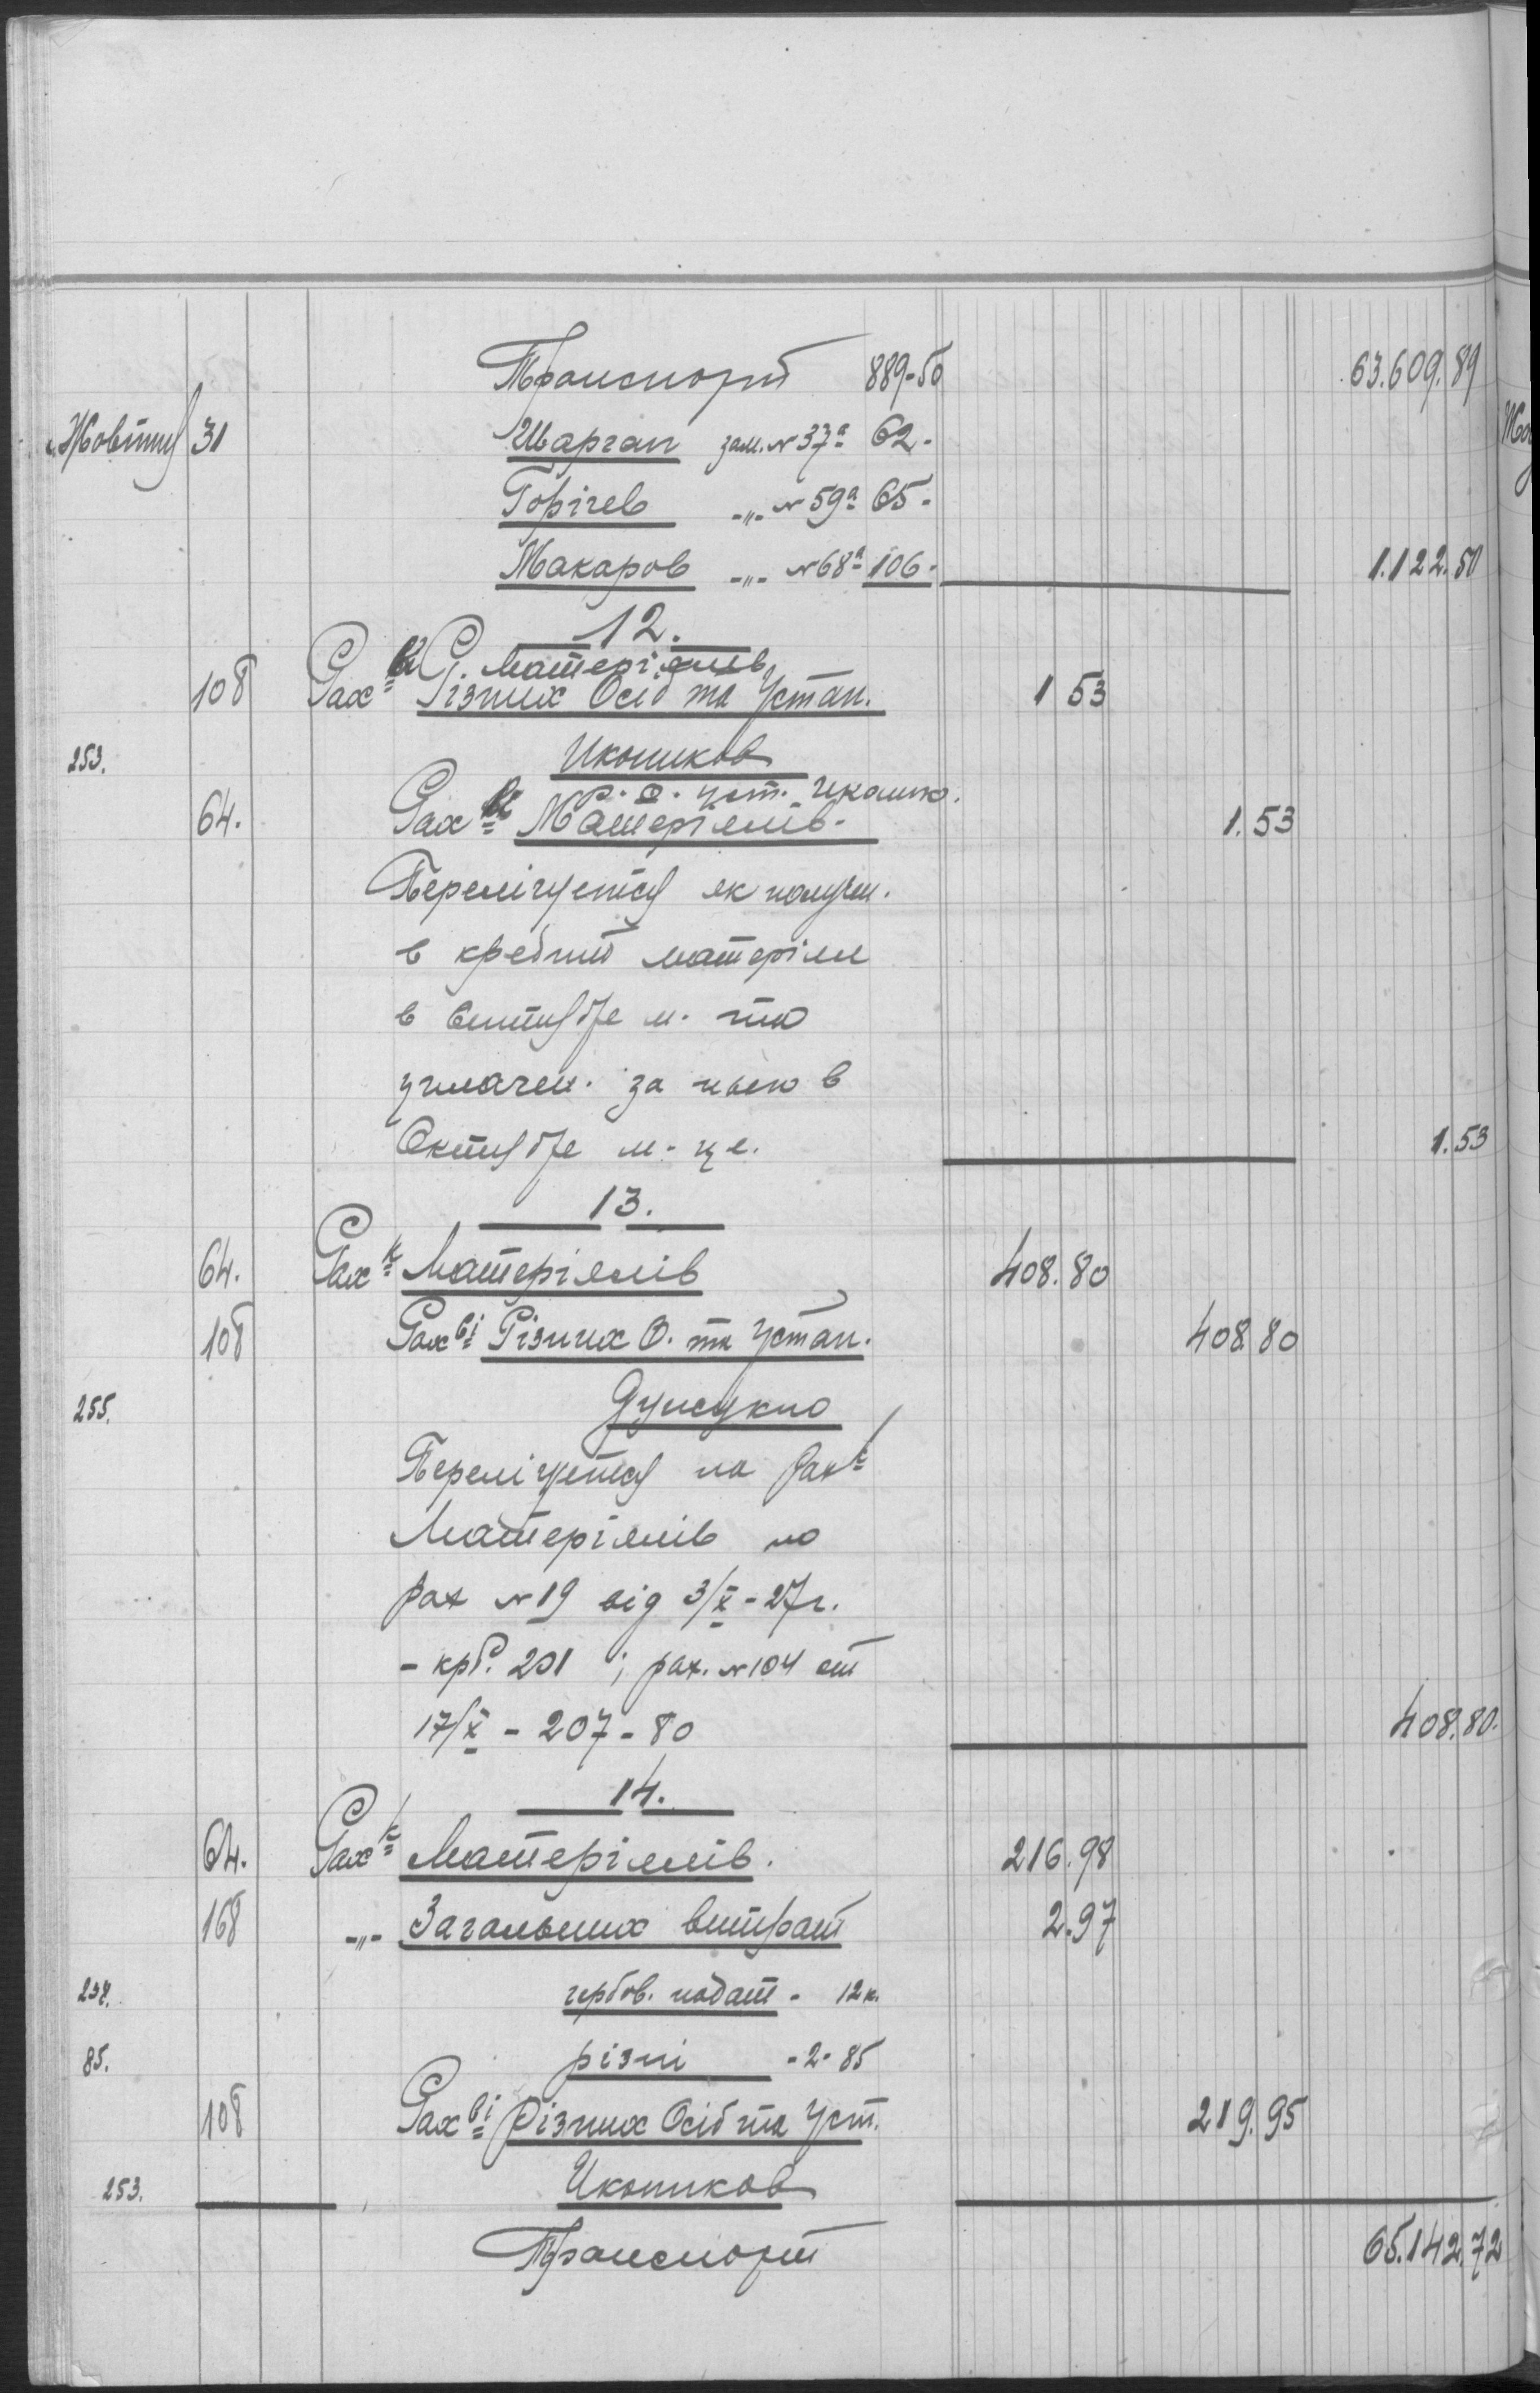 Транспорт 889-50 63.609.89
Жовтня 31 Шарган зам. № 37а 62.-
Горічев -„- № 59а 65-
Макаров -„- № 68а 106- 1.122.50
12.
Матеріялів
108 Рах Різних Осіб та Устан. 1 53
253. Икоников
Р. О. уст. Иконик.
64. Рах Матеріялів. 1.53
Перелічується як получ.
в кредит матеріял
в м. та
уплачен. за нього в
Октябре м-це. 1.53
13.
64. Рахк Матеріялів 408.80
108 Рахві Різних О. та Устан. 408.80
255.
Перелічується на рахк
Матеріялів по
рах № 19 від 3/X - 27 г.
- крб. 201 ; рах. № 104 от
17/X - 207-80 408.80.
14.
64. Рахк Матеріялів. 216.98
168 -„- Загальних витрат 2.97
гербов. подат - 12 к.
85. різні - 2-85
108 Рахві Різних Осіб та Уст. 219.95
253. Икоников
Транспорт 65.142.72